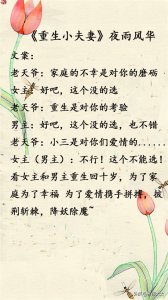 《重生小夫妻》夜雨风华
文案：
老天爷：家庭的不幸是对你的磨砺
女主：好吧，这个没的选
老天爷：重生是对你的考验
男主：好吧，这个没的选，也不错
老天爷：小三是对你们爱情的......
女主（男主）：不行！这个不能选！
看女主和男主重生回十岁，为了家
庭为了幸福 为了爱情携手拼搏，披
荆斩棘，降妖除魔~